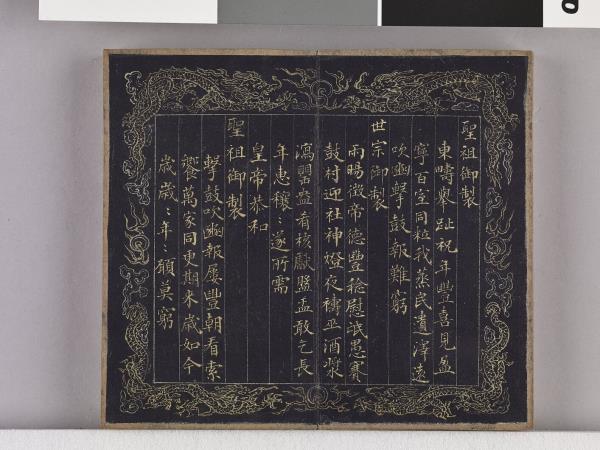 聖祖御製
東疇舉趾祝年豐喜見盈
寧百室同粒我蒸民遺澤遠
吹豳擊鼓報難窮
世宗御製
雨暘徵帝德豐稔慰氓愚賽
鼓村迎社神燈夜禱巫酒漿
瀉罌盎肴核獻盤盂敢乞長
年惠穰〻遂所需
皇帝恭和
聖祖御製
擊鼓吹豳報屢豐朝看索
饗萬家同更期來歲如今
歲歲〻年〻願莫窮